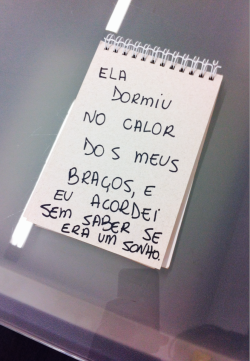 ELA
DORMIU
NO CALOR
DOS MEUS
BRAÇOS, E
EU ACORDEI
SEM SABER SE
ERA UM SONHO.